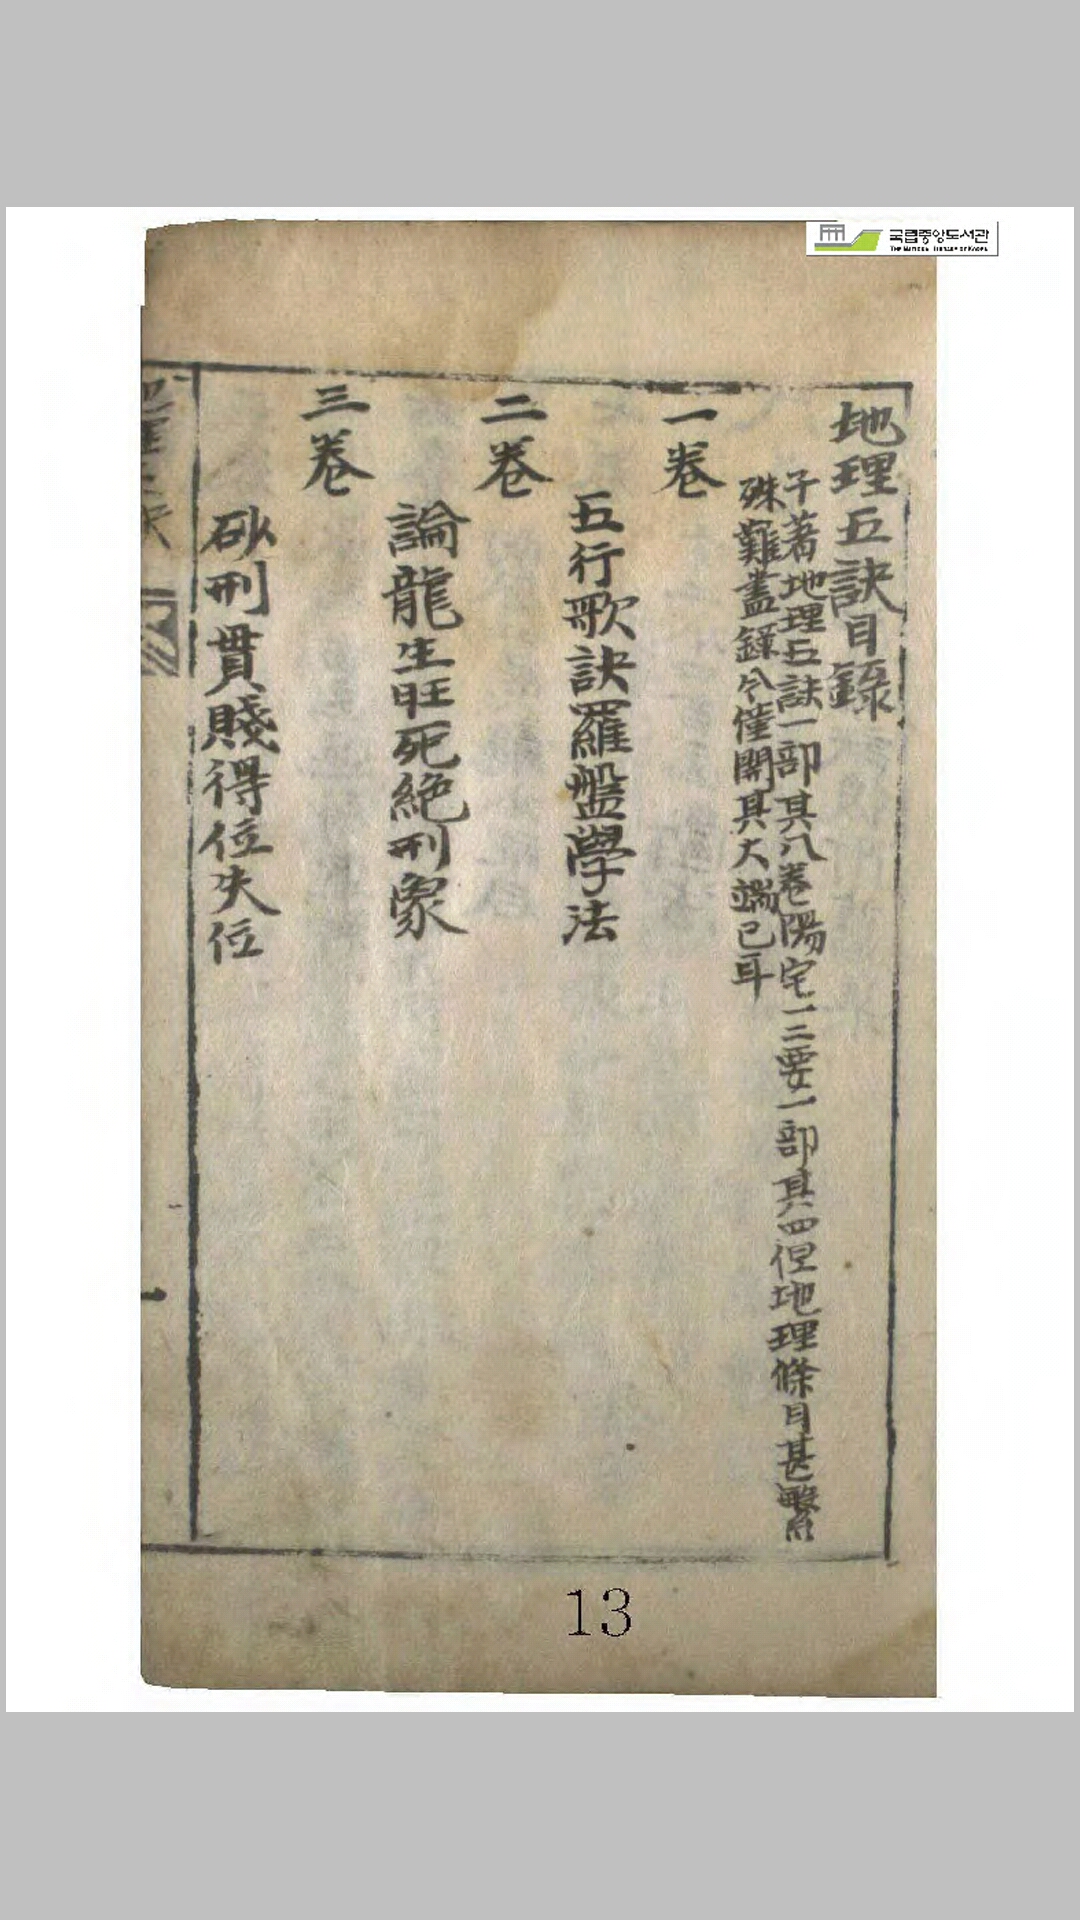 地理五訣目錄
子著地理五訣一部其八卷陽宅一三要一部其四但地理條目甚繁
殊難盡錄今僅開其大端已耳
一卷
五行歌訣羅盤學法
二卷
論龍生旺死絶刑象
三卷
砂刑貫賤得位失位
一
국립중앙도서관
THE NATIONAL LIBRARY OF KOREA
13